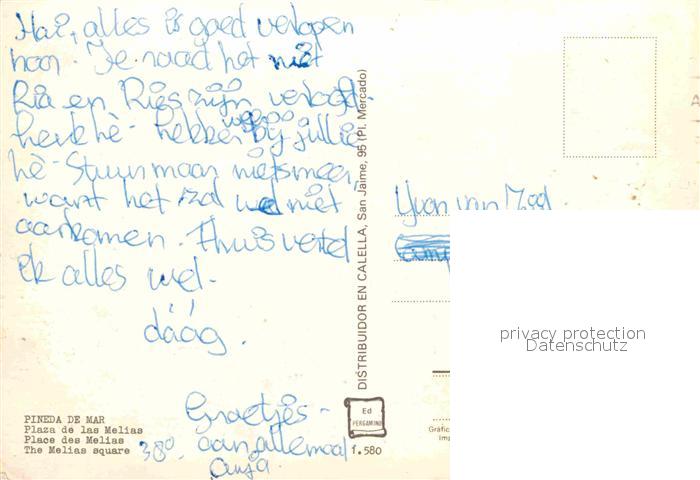 Hai, alles is goed verlopen
hoor. Je raad het niet
Ria en Ries zijn verloofd
hè - hebben bij jullie
hè - Stuur maar niets meer,
want het zal wel niet
aankomen. Thuis vertel
ik alles wel.
dááág.
Groetjes -
aan allemaal
Anja.
380.
PINEDA DE MAR
Plaza de las Melias
Place des Melias
The Melias square
DISTRIBUIDOR EN CALELLA, San Jaime, 95 (Pl. Mercado)
Ed
PERGAMINO
f. 580
Yvon van
privacy protection
Datenschutz